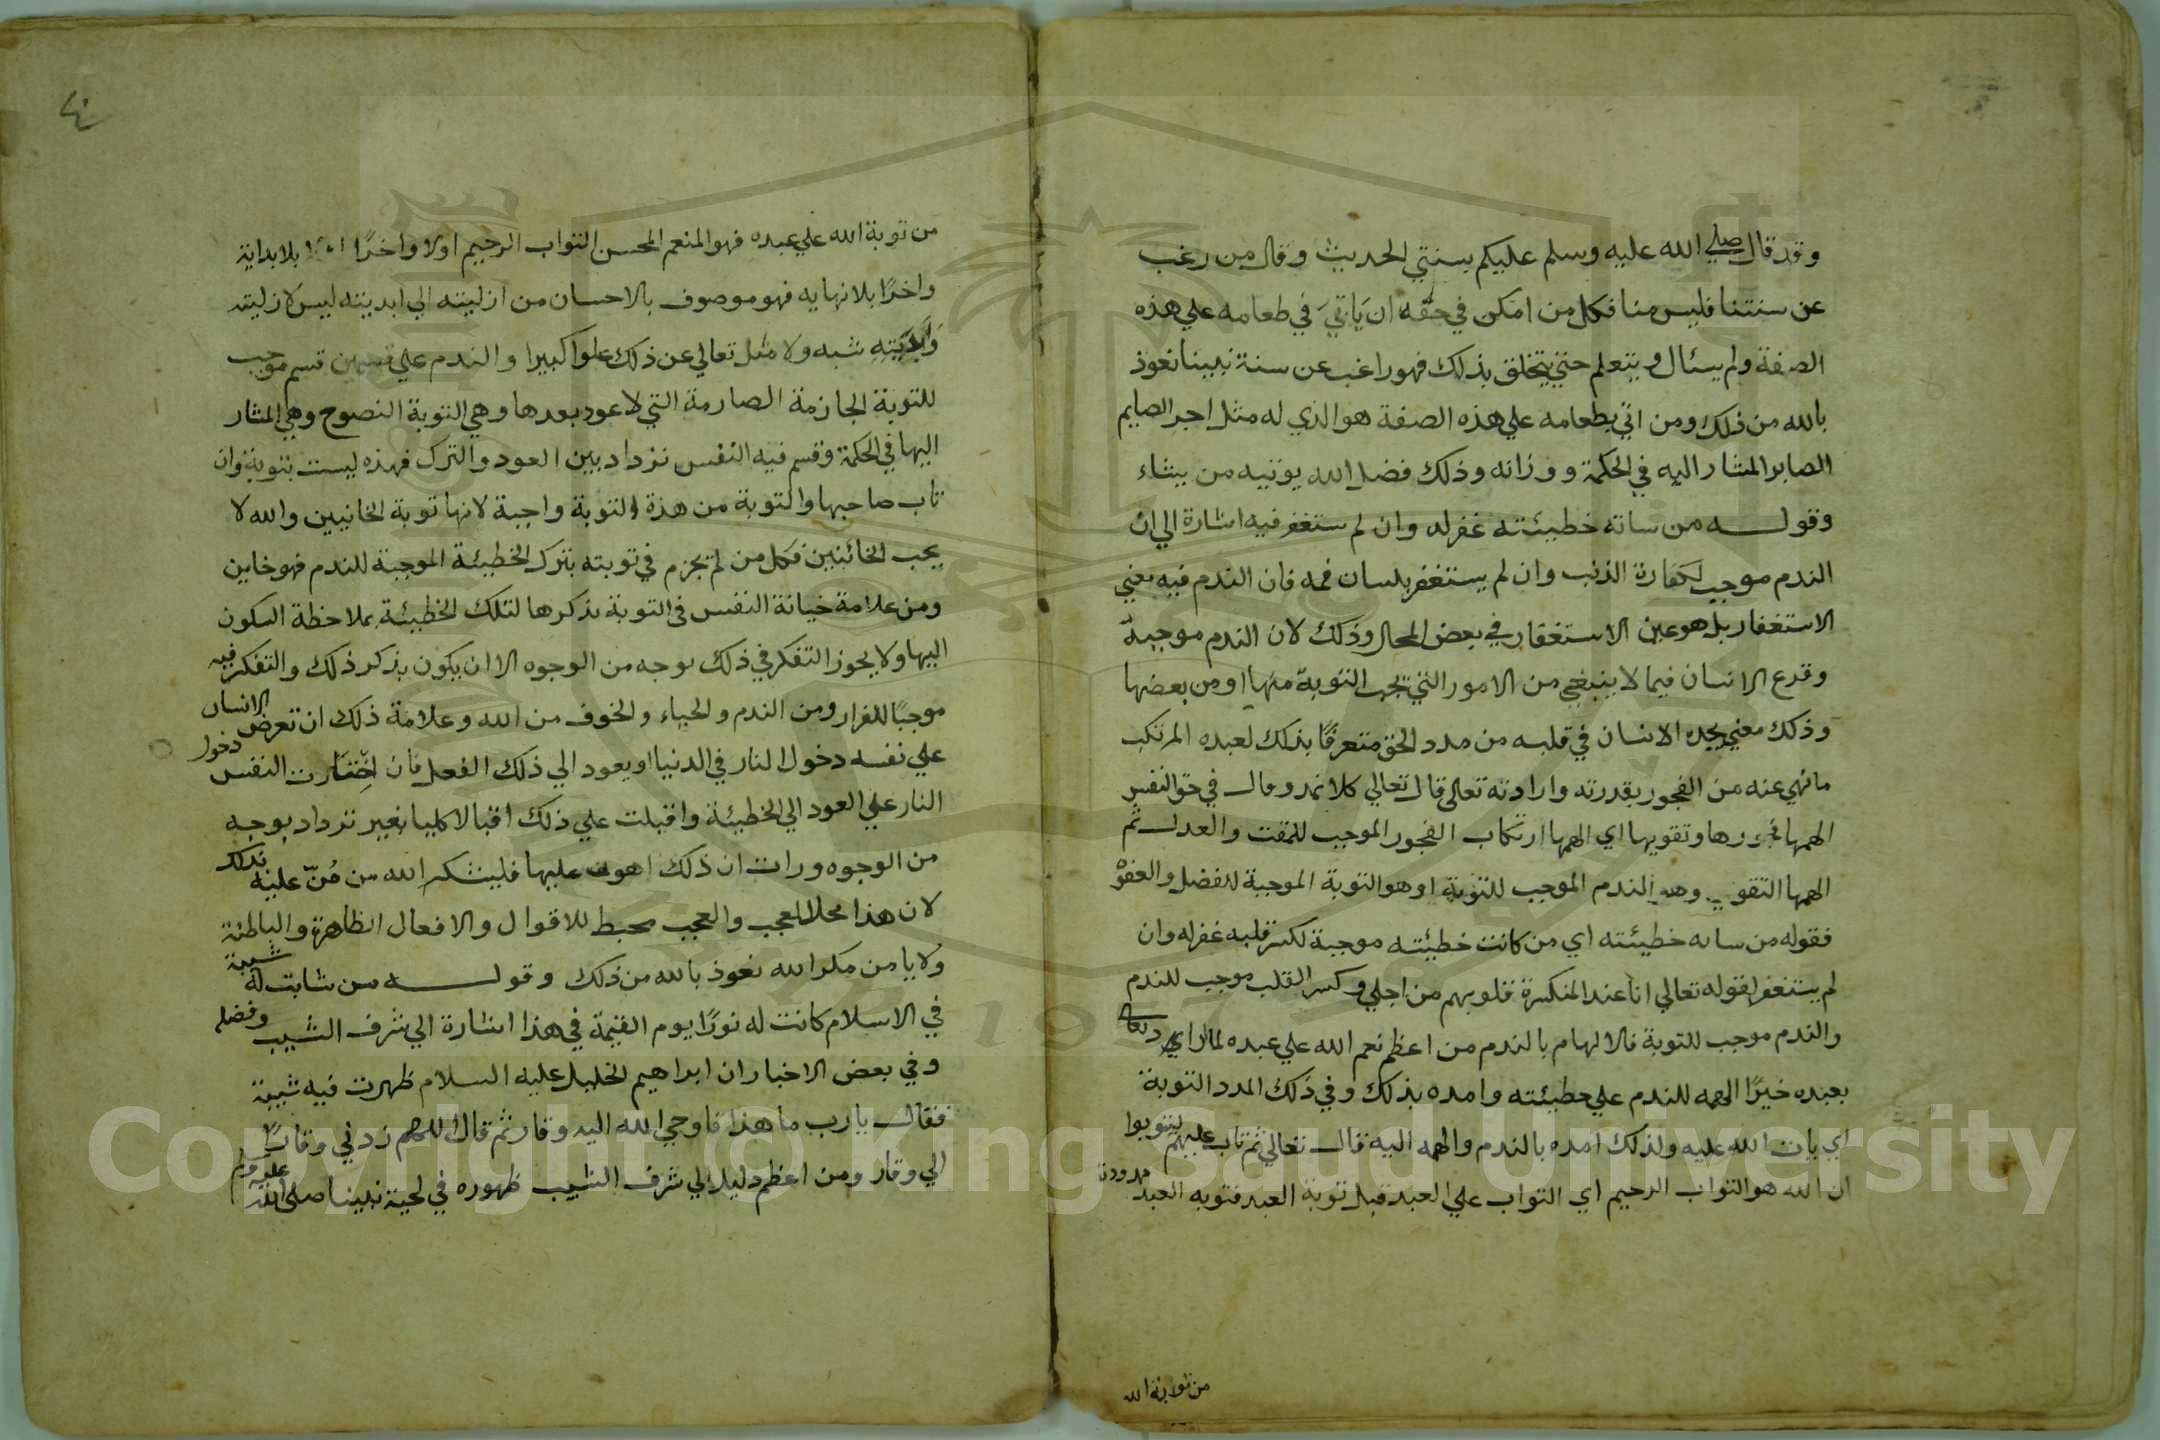 وقد قال صلي الله عليه وسلم عليكم بسنتي الحديث وقال من رغب
عن سنتنا فليس منا فكل من امكن في حقه ان ياتي في طعامه علي هذه
الصفة ولم يسئال ويتعلم حتي يتخلق بذلك فهو راغب عن سنة نبينا نعوذ
بالله من ذلك ومن اتي بطعامه علي هذه الصفة هو الذي له مثل اجر الصايم
الصابر المشار اليه في الحكمة ووزانه وذلك فضل الله يؤتيه من يشاء
وقوله من ساته خطيئته غفر له وان لم ستغفر فيه اشارة الي ان
الندم موجب لكفارة الذنب وان لم يستغفر بلسان فمه فان الندم فيه معني
الاستغفار بل هو عين الاستغفار في بعض المحال وذلك لان الندم موجبة
وقدع الانسان فيما لا ينبغي من الامور التي تجب التوبة منها او من بعضها
وذلك معني يجده الانسان في قلبه من مدد الحق متعرفا بذلك لعبده المرتكب
ما نهي عنه من الفجور بقدرته وارادته تعالي قال تعالي كلا نمد وقال في حق النفس
الهمها فجورها وتقويها اي الهمها ارتكاب الفجور الموجب للمقت والعدل ثم
الهمها التقوي وهو الندم الموجب للتوبة او هو التوبة الموجبة للفضل والعفو
فقوله من ساته خطيئته اي من كانت خطيئته موجبة لكسر قلبه غفر له وان
لم يستغفر لقوله تعالي انا عند المنكسرة قلوبهم من اجلي وكسر القلب موجب للندم
والندم موجب للتوبة فالالهام بالندم من اعظم نعم الله علي عبده لما اراد تعالي
بعبده خيرا الهمه للندم علي خطيئته وامده بذلك وفي ذلك المدد التوبة
اي تاب الله عليه ولذلك امده بالندم والهمه اليه قال تعالي ثم تاب عليهم ليتوبوا
ان الله هو التواب الرحيم اي التواب علي العبد قبل توبة العبد فتوبه العبد
من توبة الله
٤
من توبة الله علي عبده فهو المنعم المحسن التواب الرحيم اولا واخرا بلا بداية
واخرا بلا نهايه فهو موصوف بالاحسان من ازليته الي ابديته ليس لازليته
ولابديته شبه ولا مثل تعالي عن ذلك علوا كبيرا والندم علي قسمين قسم موجب
للتوبة الجازمة الصارمة التي لا عود بعدها وهي التوبة النصوح وهي المشار
اليها في الحكمة وقسم فيه النفس تزداد بين العود والترك فهذه ليست بتوبة وان
تاب صاحبها والتوبة من هذة التوبة واجبة لانها توبة الخاىيين والله لا
يحب الخائنين فكل من لم يجزم في توبته بترك الخطيئة الموجبة للندم فهو خاين
ومن علامة خيانة النفس في التوبة بذكرها لتلك الخطيئة بملاحظة السكون
اليها ولا يجوز التفكر في ذلك بوجه من الوجوه الا ان يكون بذكر ذلك والتفكر فيه
موجبا للفرار ومن الندم والحياء والخوف من الله وعلامة ذلك ان تعرض الانسان
علي نفسه دخول النار في الدنيا او يعود الي ذلك الفعل فان اختارت النفس دخول
النار علي العود الي الخطيئة واقبلت علي ذلك اقبالا كليا بغير ترداد بوجه
من الوجوه ورات ان ذلك اهون عليها فليشكر الله من من عليه بذلك
لان هذا محلا للعجب والعجب محبط للاقوال والافعال الظاهرة والباطنة
ولا يامن مكر الله نعوذ بالله من ذلك وقوله من شابت له شيبة
في الاسلام كانت له نورا يوم القيمة في هذا اشارة الي شرف الشيب وفضله
وفي بعض الاخبار ان ابراهيم الخليل عليه السلام ظهرت فيه شيبة
فقال يارب ما هذا فاوحي الله اليه وقار ثم قال اللهم زدني وقارا
الي وقار ومن اعظم دليل الي شرف الشيب ظهوره في لحية نبينا صلى الله عليه وسلم
Copyright © King Saud University